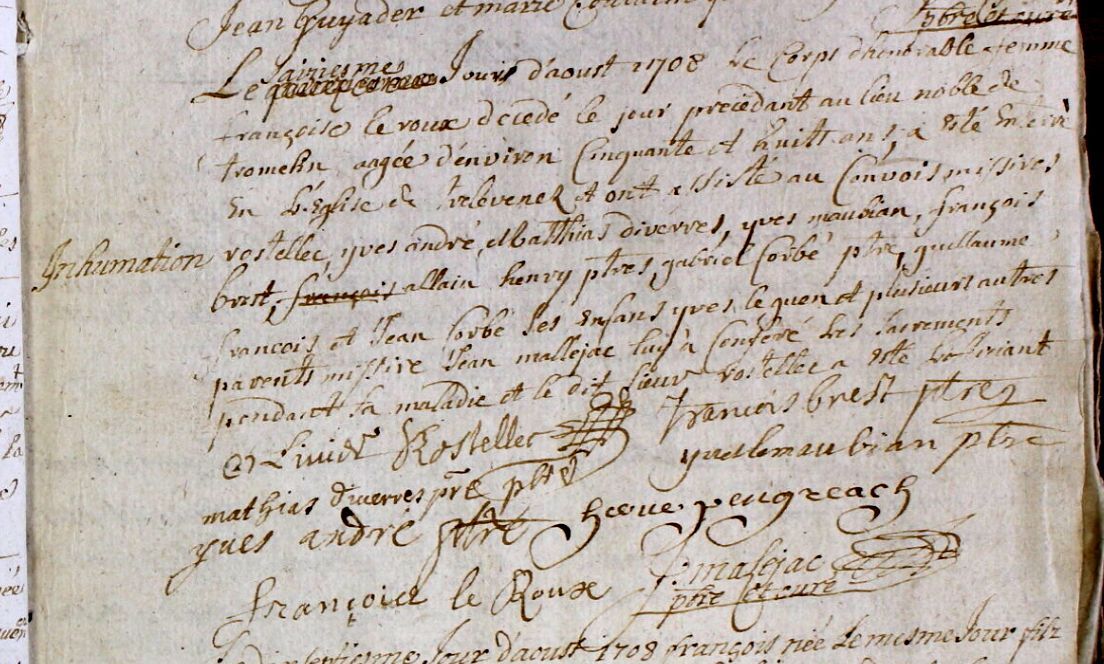 Jean Guyader et marie
ptre et curé
saiziesme
Le Jour d'aoust 1708 le Corps d'honorable femme
françoise le roux decedé le jour precedant au lieu noble de
tromelin aagée d'environ Cinquante et huitt ans, a esté Enterré
En L'Eglise de trelevenez et ont assisté au Convois missires
Inhumation
rostellec, yves andré, Matthias diverres, yves maubian, françois
brest, françois allain henry ptres, gabriel Corbé ptre, guillaume
francois et Jean Corbé ses Enfans yves le guen et plusieurs autres
parents missire Jean mallejac luy à Conferé les sacrements
pendant sa maladie et le dit sieur rostellec a esté
Rostellec ptre
francois brest ptre
yves le maubian ptre
mathias diverres pre
yves andré ptre
herve pengreach
françois le Roux
J: malejac
ptre et curé
septiesme Jour d'aoust 1708 françois née Le mesme Jour fils